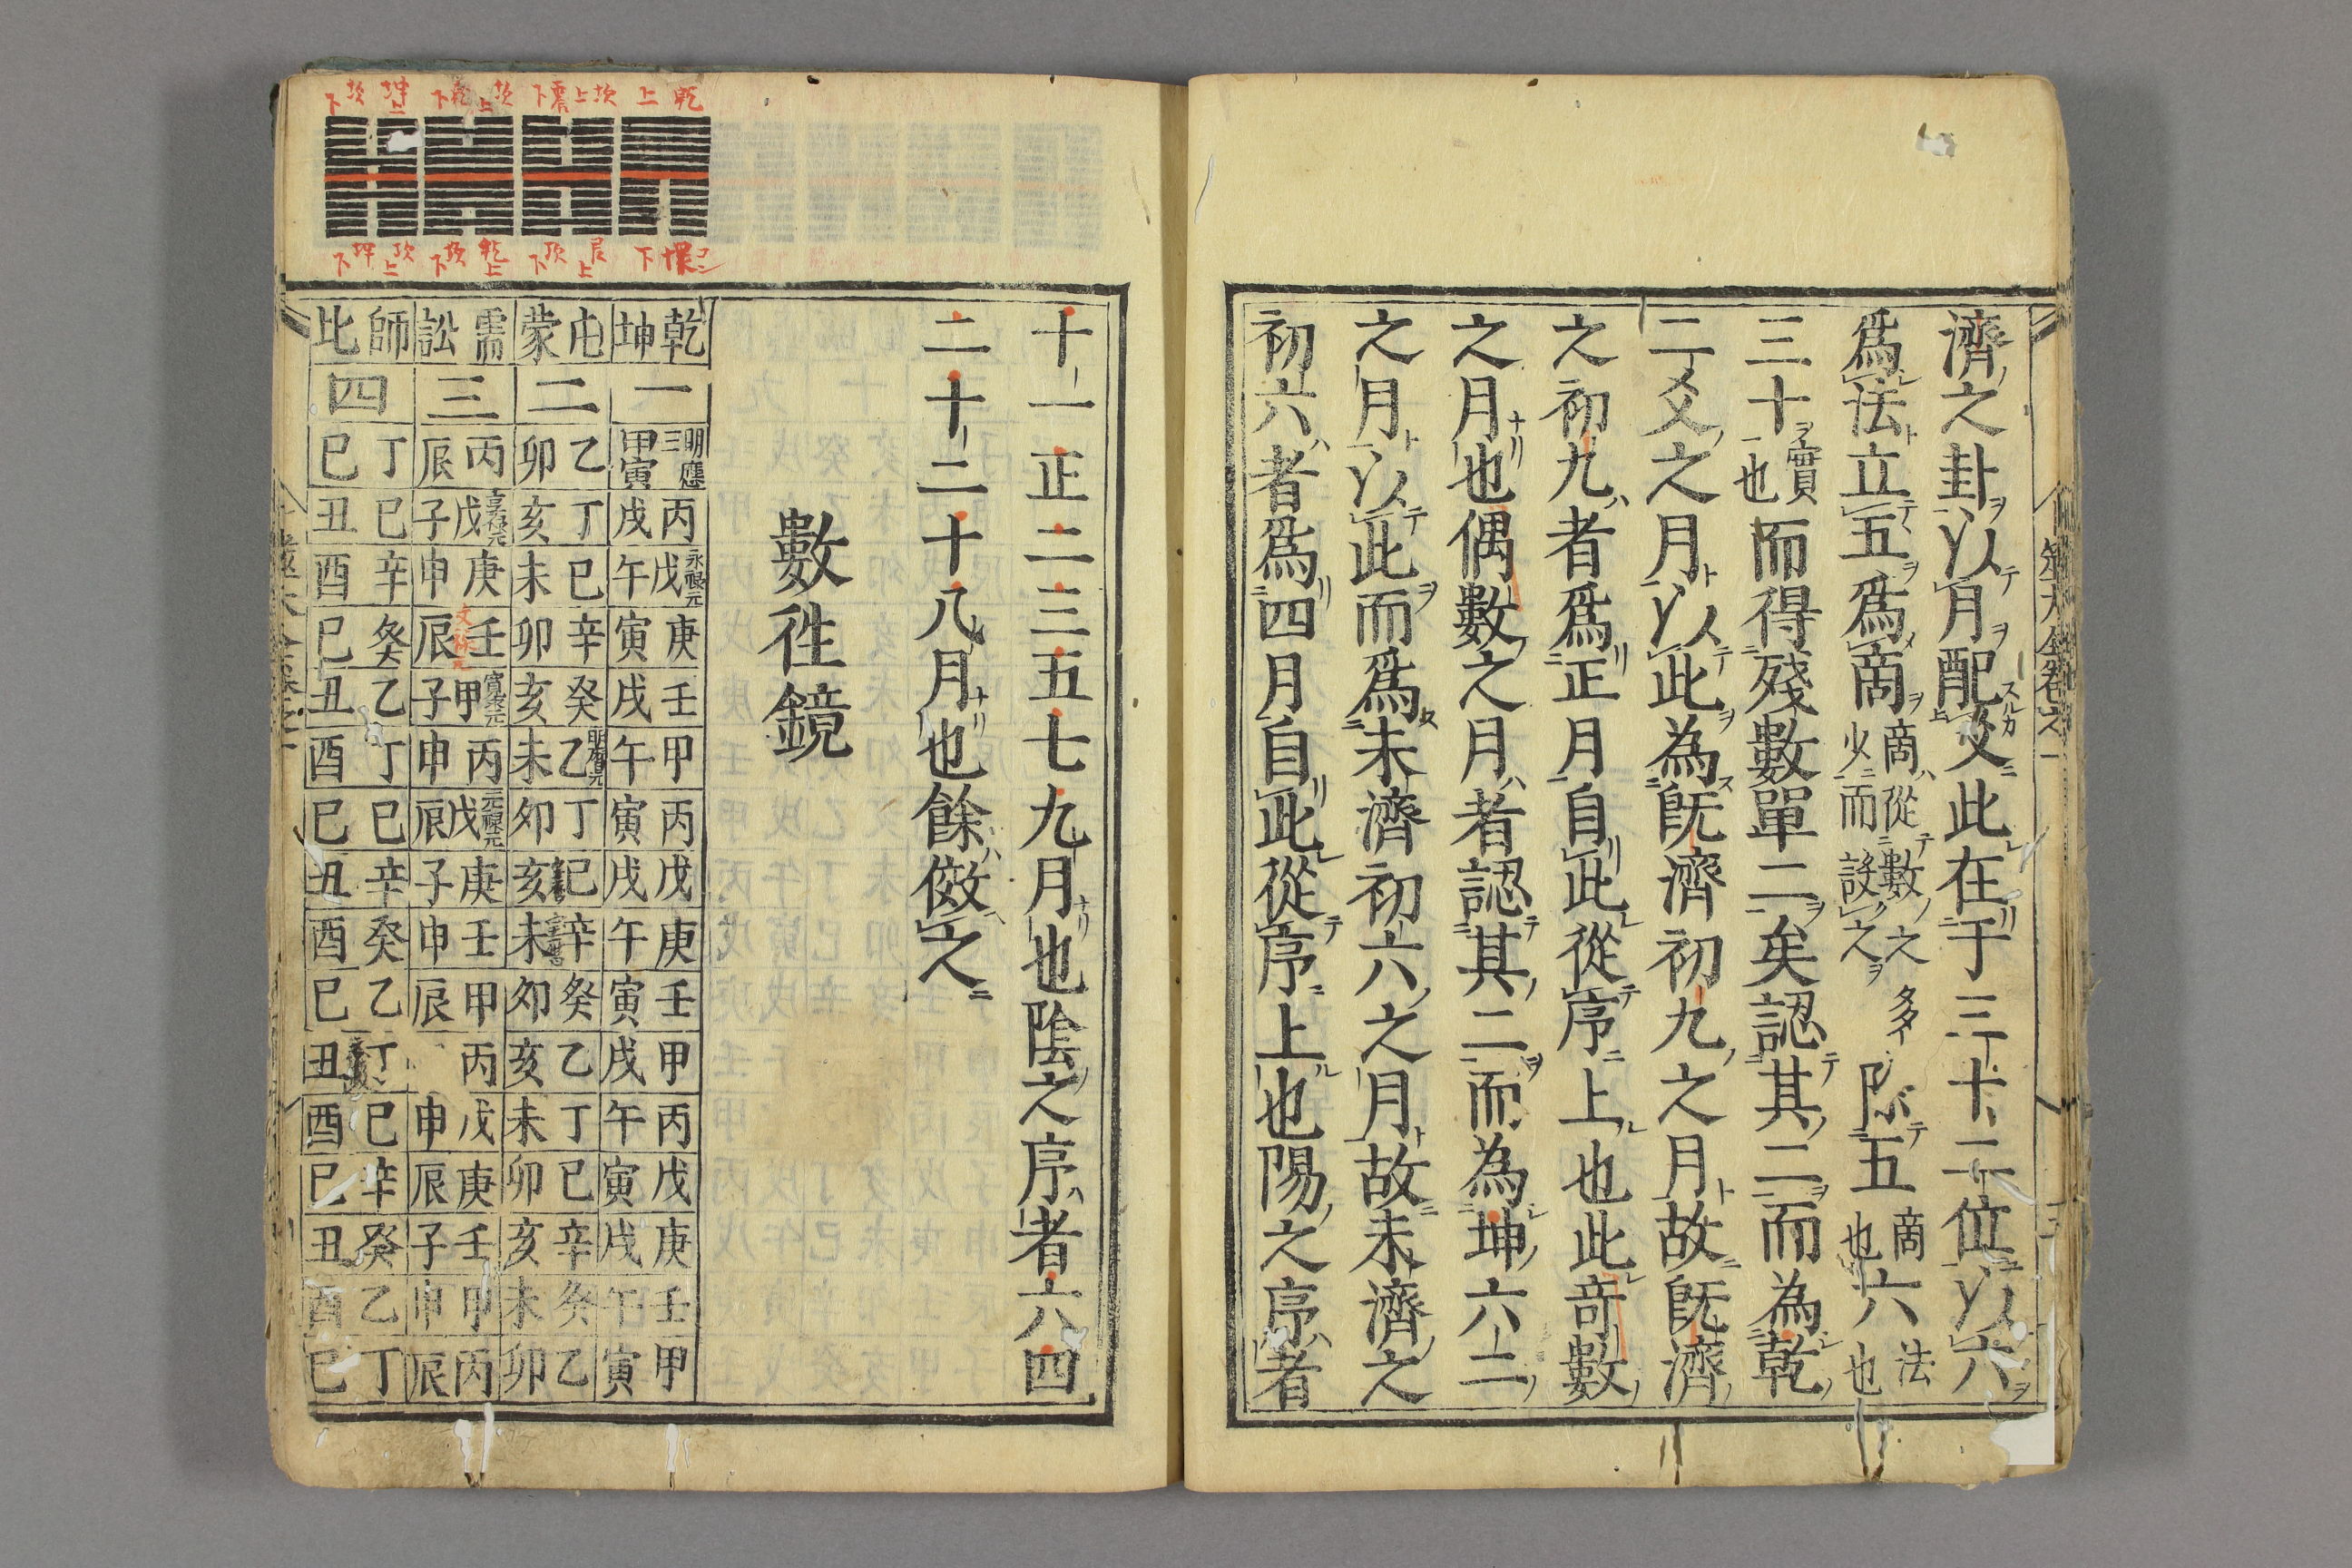 濟之卦以月配爻此在于三十二位以六
爲法立五爲商商從數之多少而設之除五商也六法也
三十實也而得殘數單二矣認其二而為乾
二爻之月以此為既濟初九之月故既濟
之初九者爲正月自此從序上也此奇數
之月也偶數之月者認其二而為坤六二
之月以此而爲未濟初六之月故未濟之
初六者爲四月自此從序上也陽之序者
十一正二三五七九月也陰之序者六四
二十二十八月也餘倣之
數徃鏡
乾上 坎上 震下 坎上 乾下 坤上 坎下
下 艮上 坎下 乾上 坎下 坎上 坤下
乾坤 屯蒙 需訟 師比
一 二 三 四
明應三 甲寅 乙卯 丙辰 丁巳
丙戌 丁亥 戊子 己丑
永祿元 戊午 己未 庚申 辛酉
庚寅 辛卯 壬辰 癸巳
壬戌 癸亥 寛永元 甲子 乙丑
甲午 乙未 丙申 丁酉
丙寅 丁卯 元祿元 戊辰 己巳
戊戌 己亥 庚子 辛丑
庚午 辛未 壬申 癸酉
壬寅 癸卯 甲辰 乙巳
甲戌 乙亥 丙 丁丑
丙午 丁未 戊申 己酉
戊寅 己卯 庚辰 辛巳
庚戌 辛亥 壬子 癸丑
壬午 癸未 甲申 乙酉
甲寅 乙卯 丙辰 丁巳